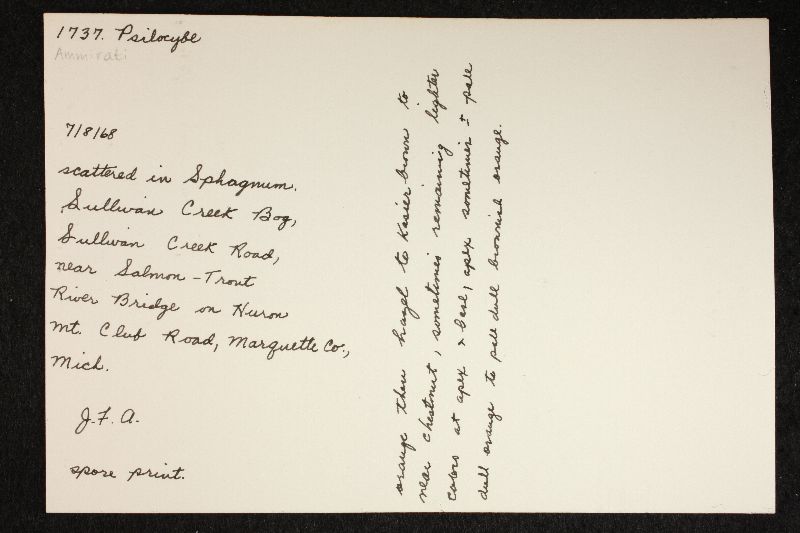 1737. Psilocybe
Ammirati
7/8/68
scattered in Sphagnum.
Sullivan Creek Bog,
Sullivan Creek Road,
near Salmon-Trout
River Bridge on Huron
Mt. Club Road, Marquette Co.,
Mich.
J. F. A.
spore print.
orange then hazel to Kaiser brown to
near chestnut, sometimes remaining lighter
colors at apex & base, apex sometimes ± pale
dull orange to pale dull brownish orange.